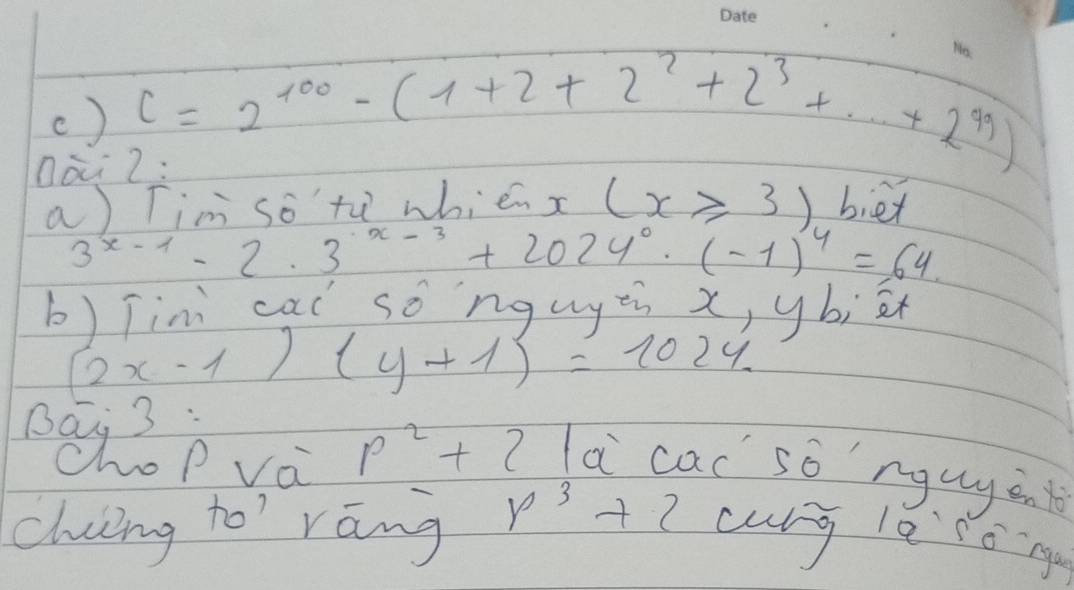 Date
No.
c) C = 2^100 - (1+2+2^2+2^3+...+2^99)
Bài 2:
a) Tìm số tự nhiên x (x ≥ 3) biết
3^x-1 - 2.3^x-3 + 2024^0.(-1)^4 = 64.
b) Tìm các số nguyên x, y biết
(2x-1)(y+1) = 1024.
Bài 3:
Cho P và P^2+2 là các số nguyên tố
chứng tỏ rằng P^3+2 cũng là số